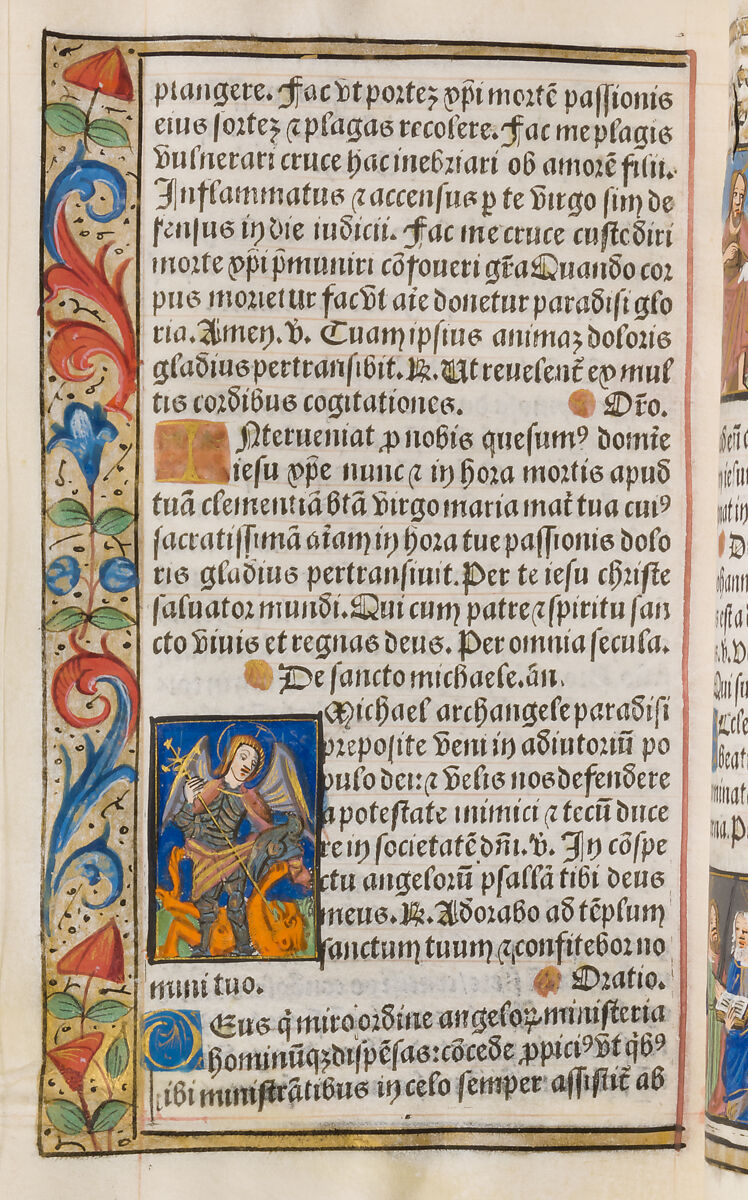 plangere. Fac vt portez xp̄i mortē passionis
eius sortez ⁊ plagas recolere. Fac me plagis
vulnerari cruce hac inebriari ob amorē filii.
Inflammatus ⁊ accensus ꝑ te virgo sim de
fensus in die iudicii. Fac me cruce custodiri
morte xp̄i p̄muniri cōfoueri gr̄a Quando cor
pus morietur fac vt aīe donetur paradisi glo
ria. Amen. v̄. Tuam ipsius animaz doloris
gladius pertransibit. ℟. Ut reuelent̄ ex mul
tis cordibus cogitationes. Or̄o.
INterueniat ꝓ nobis quesumꝰ domīe
iesu xp̄e nunc ⁊ in hora mortis apud
tuā clementiā btā̄ virgo maria mat̄ tua cuiꝰ
sacratissimā aīam in hora tue passionis dolo
ris gladius pertransiuit. Per te iesu christe
saluator mundi. Qui cum patre ⁊ spiritu san
cto viuis et regnas deus. Per omnia secula.
De sancto michaele. añ.
Michael archangele paradisi
preposite veni in adiutoriū po
pulo dei: ⁊ velis nos defendere
a potestate inimici ⁊ tecū duce
re in societatē dn̄i. v̄. In cōspe
ctu angelorū psallā tibi deus
meus. ℟. Adorabo ad tēplum
sanctum tuum ⁊ confitebor no
mini tuo. Oratio.
DEus q̄ miro ordine angeloꝝ ministeria
hominūqꝫ dispēsas: cōcede ꝓpiciꝰ vt q̄bꝰ
tibi ministrātibus in celo semper assistit̄ ab